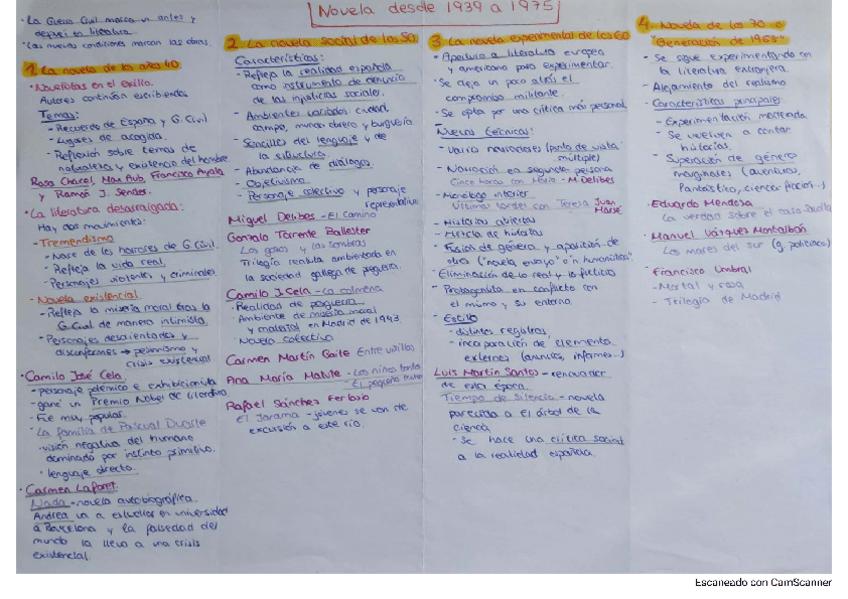 Novela desde 1939 a 1975
· La Guerra Civil marca un antes y
después en literatura.
· Las nuevas condiciones marcan las obras.
1. La novela de los años 40
· Novelistas en el exilio.
Autores continúan escribiendo
Temas:
- Recuerdo de España y G. Civil
- Lugares de acogida.
- Reflexión sobre temas de
naturaleza y existencia del hombre
Rosa Chacel, Max Aub, Francisco Ayala
y Ramón J. Sender.
· La literatura desarraigada:
Hay dos movimientos:
- Tremendismo
- Nace de los horrores de G. Civil.
- Refleja la vida real.
- Personajes violentos y criminales
- Novela existencial
- Refleja la miseria moral tras la
G. Civil de manera intimista.
- Personajes desorientados y
disconformes → pesimismo y
crisis existencial
· Camilo José Cela
- personaje polémico e exhibicionista
- gana un Premio Nobel de Literatura
- Fue muy popular.
- La familia de Pascual Duarte
· visión negativa del humano
dominado por instinto primitivo.
· lenguaje directo.
· Carmen Laforet
Nada - novela autobiográfica.
Andrea va a estudiar en universidad
a Barcelona y la falsedad del
mundo la lleva a una crisis
existencial.
2. La novela social de los 50
Características:
- Refleja la realidad española
como instrumento de denuncia
de las injusticias sociales.
- Ambientes variados: ciudad
campo, mundo obrero y burguesía
- Sencillez del lenguaje y de
la estructura.
- Abundancia de diálogos.
- Objetivismo
- Personaje colectivo y personaje
representativo
Miguel Delibes - El camino
Gonzalo Torrente Ballester
Los gozos y las sombras
Trilogía realista ambientada en
la sociedad gallega de posguerra.
Camilo J. Cela - La colmena
- Realidad de posguerra
- Ambiente de miseria moral
y material en Madrid de 1943
- Novela colectiva
Carmen Martín Gaite Entre visillos
Ana María Matute - Los niños tontos
- El pequeño teatro
Rafael Sánchez Ferlosio
El Jarama - jóvenes se van de
excursión a este río.
3. La novela experimental de los 60
- Apertura a literatura europea
y americana para experimentar.
- Se deja un poco atrás el
compromiso militante.
- Se opta por una crítica más personal
Nuevas técnicas:
- Varios narradores (punto de vista
múltiple)
- Narración en segunda persona
Cinco horas con Mario - M. Delibes
- Monólogo interior
Últimas tardes con Teresa Juan
Marsé
- Historias abiertas
- Mezcla de historias
- Fusión de género y aparición de
otros ("novela ensayo" o "humorística")
- Eliminación de lo real y lo ficticio
- Protagonista en conflicto con
él mismo y su entorno.
- Estilo
- distintos registros
- incorporación de elementos
externos (anuncios, informes...)
Luis Martín Santos - renovador
de esta época.
Tiempo de silencio - novela
parecida a El árbol de la
ciencia
- Se hace una crítica social
a la realidad española.
4. Novela de los 70 o
"Generación de 1968"
- Se sigue experimentando con
la literatura extranjera.
- Alejamiento del realismo
- Características principales:
- Experimentación moderada
- Se vuelven a contar
historias.
- Superación de género
marginales (aventuras,
fantástico, ciencia ficción...)
· Eduardo Mendoza
La verdad sobre el caso Savolta
· Manuel Vázquez Montalbán
Los mares del sur (g. policiaco)
· Francisco Umbral
- Mortal y rosa
- Trilogía de Madrid
Escaneado con CamScanner